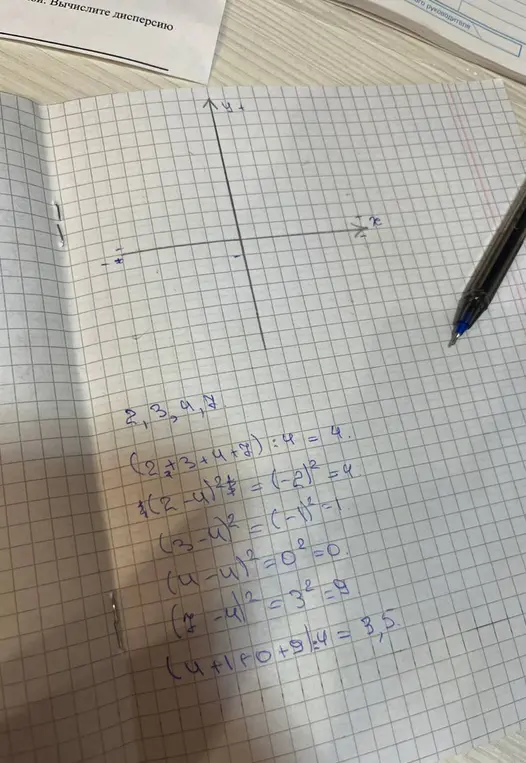 Вычислите дисперсию
руководителя
y
x
2, 3, 4, 7
(2+3+4+7):4 = 4.
(2-4)² = (-2)² = 4
(3-4)² = (-1)² = 1.
(4-4)² = 0² = 0.
(7-4)² = 3² = 9
(4+1+0+9):4 = 3,5